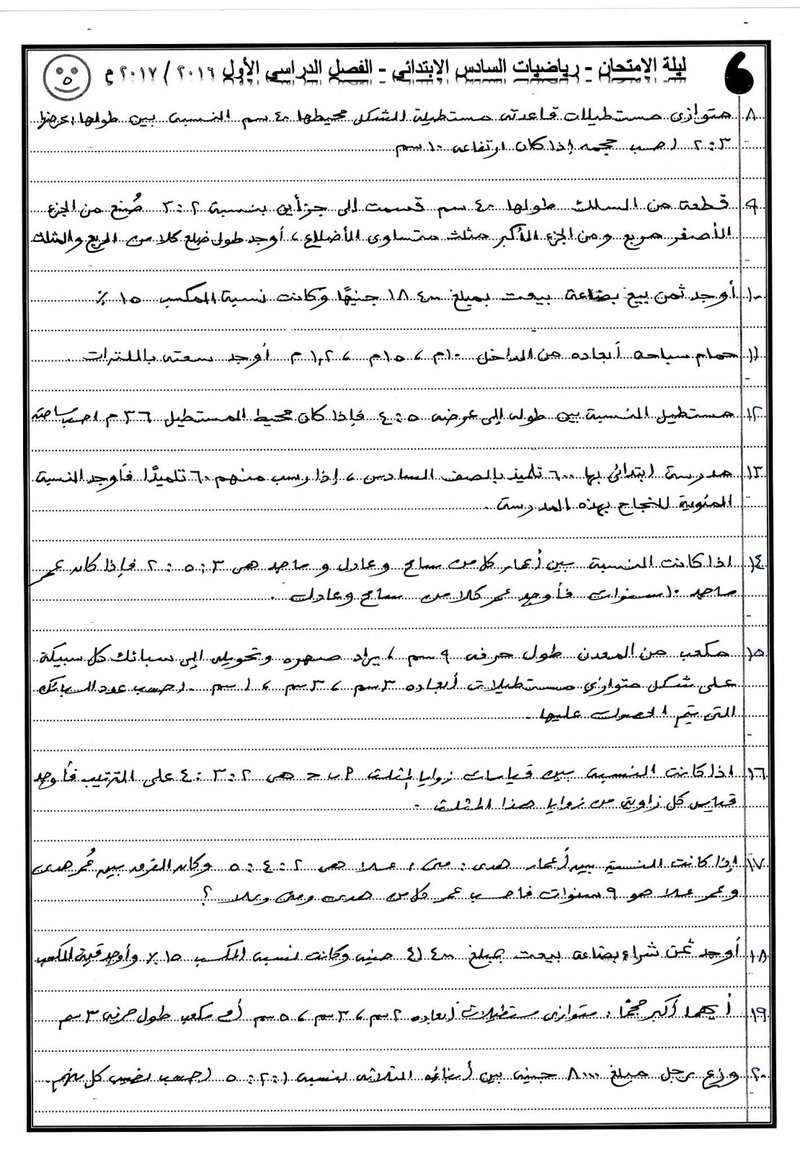 ليلة الامتحان - رياضيات السادس الابتدائى - الفصل الدراسى الأول ٢٠١٦ / ٢٠١٧ م
٦
٥
٨ متوازى مستطيلات قاعدته مستطيلة الشكل محيطها ٤٠ سم النسبة بين طولها : عرضها
٣:٢ احسب حجمه إذا كان ارتفاعه ١٠ سم
٩ قطعة من السلك طولها ٤٠ سم قسمت إلى جزأين بنسبة ٣:٢ صُنع من الجزء
الأصغر مربع ومن الجزء الأكبر مثلث متساوى الأضلاع ، أوجد طول ضلع كلا من المربع والمثلث
١٠ أوجد ثمن بيع بضاعة بيعت بمبلغ ١٨٤٠٠ جنيهًا وكانت نسبة المكسب ١٥ ٪
١١ حمام سباحة أبعاده من الداخل ١٠ م ، ١٥ م ، ١,٢ م أوجد سعته باللترات .
١٢ مستطيل النسبة بين طوله إلى عرضه ٥ : ٤ فإذا كان محيط المستطيل ٣٦ م احسب مساحته
١٣ مدرسة ابتدائى بها ٦٠٠ تلميذ بالصف السادس ، إذا رسب منهم ٦٠ تلميذًا فأوجد النسبة
المئوية للنجاح بهذه المدرسة .
١٤ اذا كانت النسبة بين أعمار كل من سامح وعادل و ماجد هى ٣ : ٥ : ٢ فإذا كان عمر
ماجد ١٠ سنوات فأوجد عمر كلا من سامح وعادل .
١٥ مكعب من المعدن طول حرفه ٩ سم ، يراد صهره وتحويله إلى سبائك كل سبيكة
على شكل متوازى مستطيلات أبعاده ٣ سم ، ٣ سم ، ١ سم . احسب عدد السبائك
التى يتم الحصول عليها .
١٦ اذا كانت النسبة بين قياسات زوايا المثلث ٢ : ٣ : ٤ هى على الترتيب فأوجد
قياس كل زاوية من زوايا هذا المثلث .
١٧ إذا كانت النسبة بين أعمار هدى : منى : علا هى ٢ : ٤ : ٥ وكان الفرق بين عُمر هدى
وعمر علا هو ٩ سنوات فاحسب عمر كل من هدى ومنى وعلا ؟
١٨ أوجد ثمن شراء بضاعة بيعت بمبلغ ٤١٤٠٠ جنيه وكانت نسبة المكسب ١٥ ٪ وأوجد قيمة المكسب
١٩ أيهما أكبر حجمًا : متوازى مستطيلات أبعاده ٢ سم ، ٣ سم ، ٥ سم أم مكعب طول حرفه ٣ سم
٢٠ وزع رجل مبلغ ٨٠٠٠ جنيه بين أبنائه الثلاثة بنسبة ١ : ٢ : ٥ احسب نصيب كل منهم .